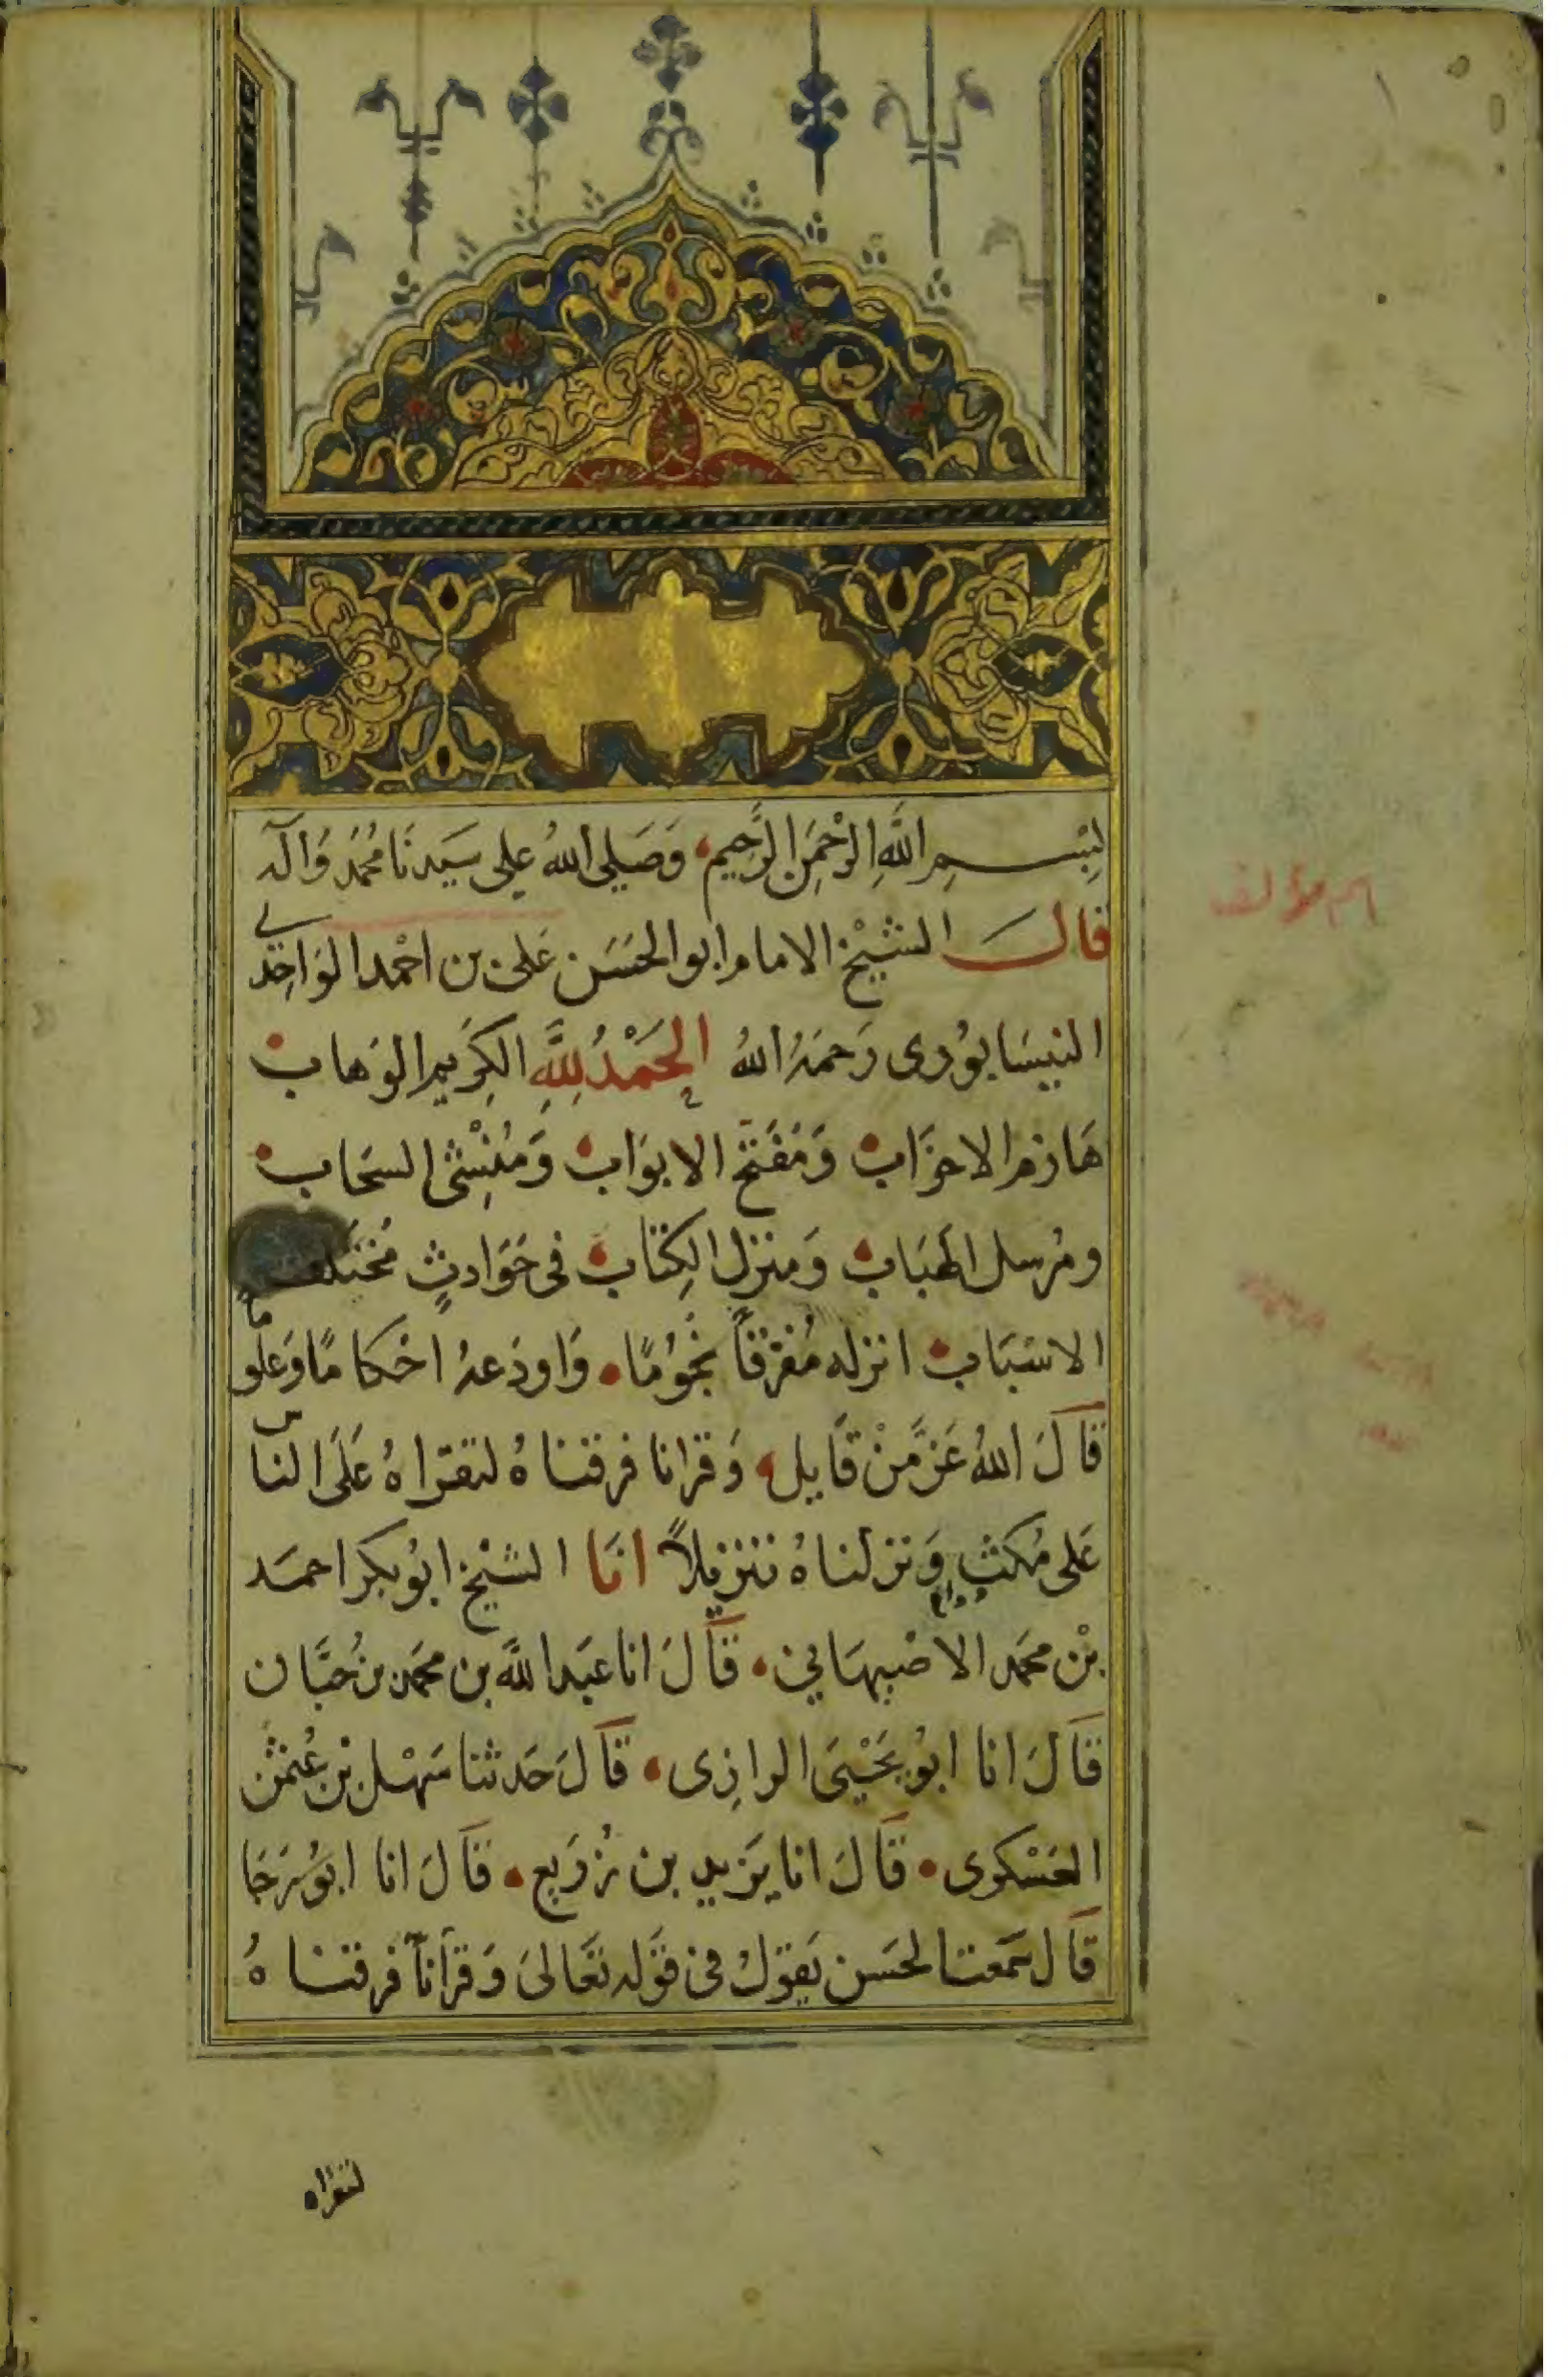 بِسْمِ اللَّهِ الرَّحْمَنِ الرَّحِيمِ وَصَلَّى اللهُ عَلَى سَيِّدنَا مُحَمَّد وَآلِهِ
قَالَ الشَّيْخ الامام ابو الحَسَن عَلى بن احْمد الوَاحِدي
النيسَابوُرى رَحمَهُ اللهُ الحَمْدُ لِلَّهِ الكَرِيم الوَهاب
هَازم الاحزَاب وَمُفَتح الابوَاب وَمُنْشِئ السَحَاب
ومُرسل الهبَاب وَمنزل الكِتَاب فى حَوَادثٍ مُختَلفة
الاسْبَاب انزله مُفرَّقاً نجُومًا وَاودَعهُ احْكامًا وَعلومًا
قَالَ اللهُ عَزَّ مَنْ قَايل وَقرانا فرقناهُ لتقرَاهُ عَلَى الناس
عَلى مُكثٍ وَنزلناهُ تنزيلاً انَا الشيْخ ابوُ بكر احمَد
بْن محمَد الاصْبهَاني قَالَ انا عَبد اللَّه بن محمَد بن حَبَّان
قَالَ انا ابوُ يَحْيَى الرازِى قَالَ حَدثنا سَهْل بْن عُثمٰن
العَسْكرى قَالَ انا يَزيد بن زُرَيع قَالَ انا ابوُ رَجَا
قَالَ سَمعت الحَسَن يَقوُلُ فى قوَله تعَالىَ وَقرآناً فرقناهُ
لتقراه
اسم مؤلف